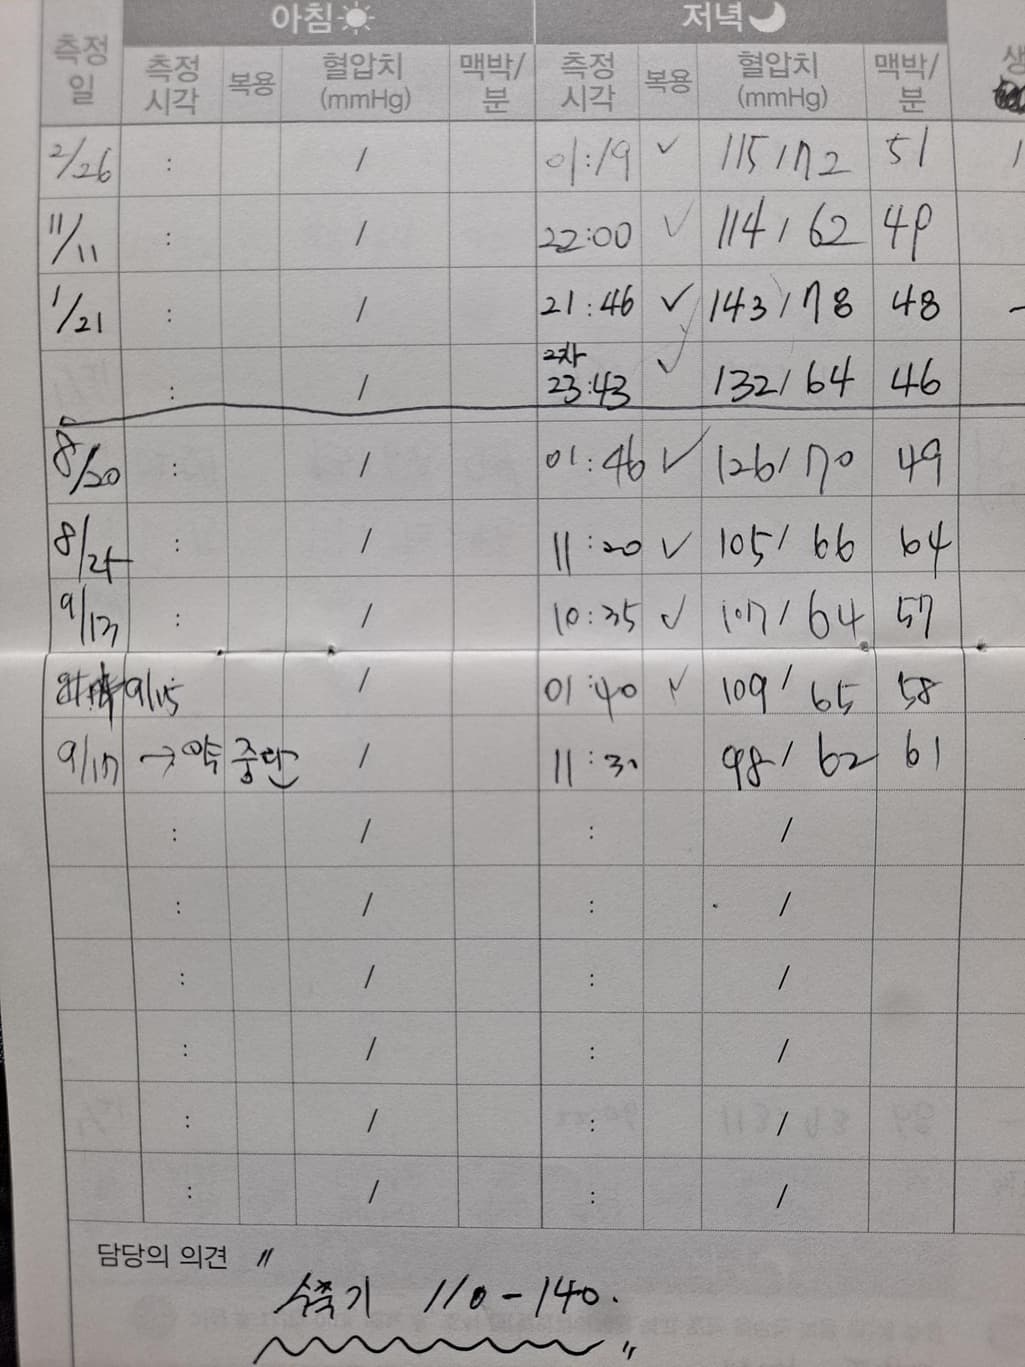 아침 저녁
측정일 측정시각 복용 혈압치(mmHg) 맥박/분 측정시각 복용 혈압치(mmHg) 맥박/분 생
2/26 : / 01:19 ✓ 115/72 51
11/11 : / 22:00 ✓ 114/62 49
1/21 : / 21:46 ✓ 143/78 48
: / 2차 23:43 ✓ 132/64 46
8/20 : / 01:46 ✓ 126/70 49
8/25 : / 11:20 ✓ 105/66 64
9/13 : / 10:35 ✓ 107/64 57
9/15 / 01:40 ✓ 109/65 58
9/17 → 약 중단 / 11:30 98/62 61
: / : /
: / : /
: / : /
: / : /
: / : /
: / : /
담당의 의견 〃
수축기 110-140.
〃